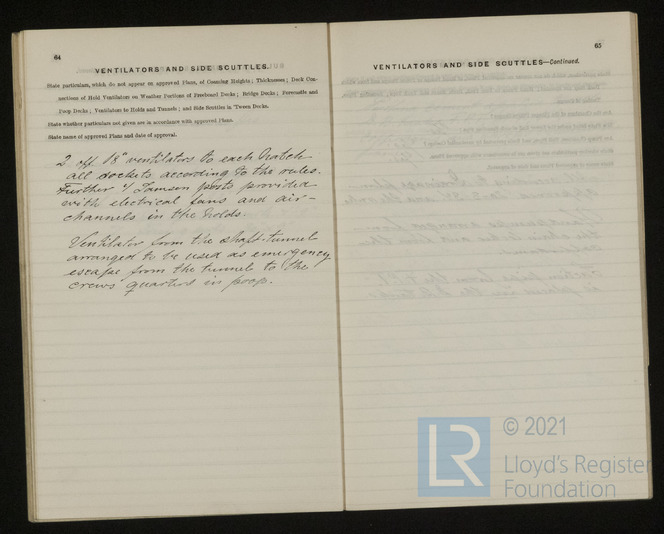 64
VENTILATORS AND SIDE SCUTTLES.
State particulars, which do not appear on approved Plans, of Coaming Heights; Thicknesses; Deck Con-
nections of Hold Ventilators on Weather Portions of Freeboard Decks; Bridge Decks; Forecastle and
Poop Decks; Ventilators to Holds and Tunnels; and Side Scuttles in 'Tween Decks.
State whether particulars not given are in accordance with approved Plans.
State name of approved Plans and date of approval.
2 off 18" ventilators to each hatch
all dockets according to the rules.
Further 4 Samson posts provided
with electrical fans and air-
channels in the holds.
Ventilator from the shaft-tunnel
arranged to be used as emergency
escape from the tunnel to the
crews quarters in poop.
65
VENTILATORS AND SIDE SCUTTLES—Continued.
LR
© 2021
Lloyd's Register
Foundation